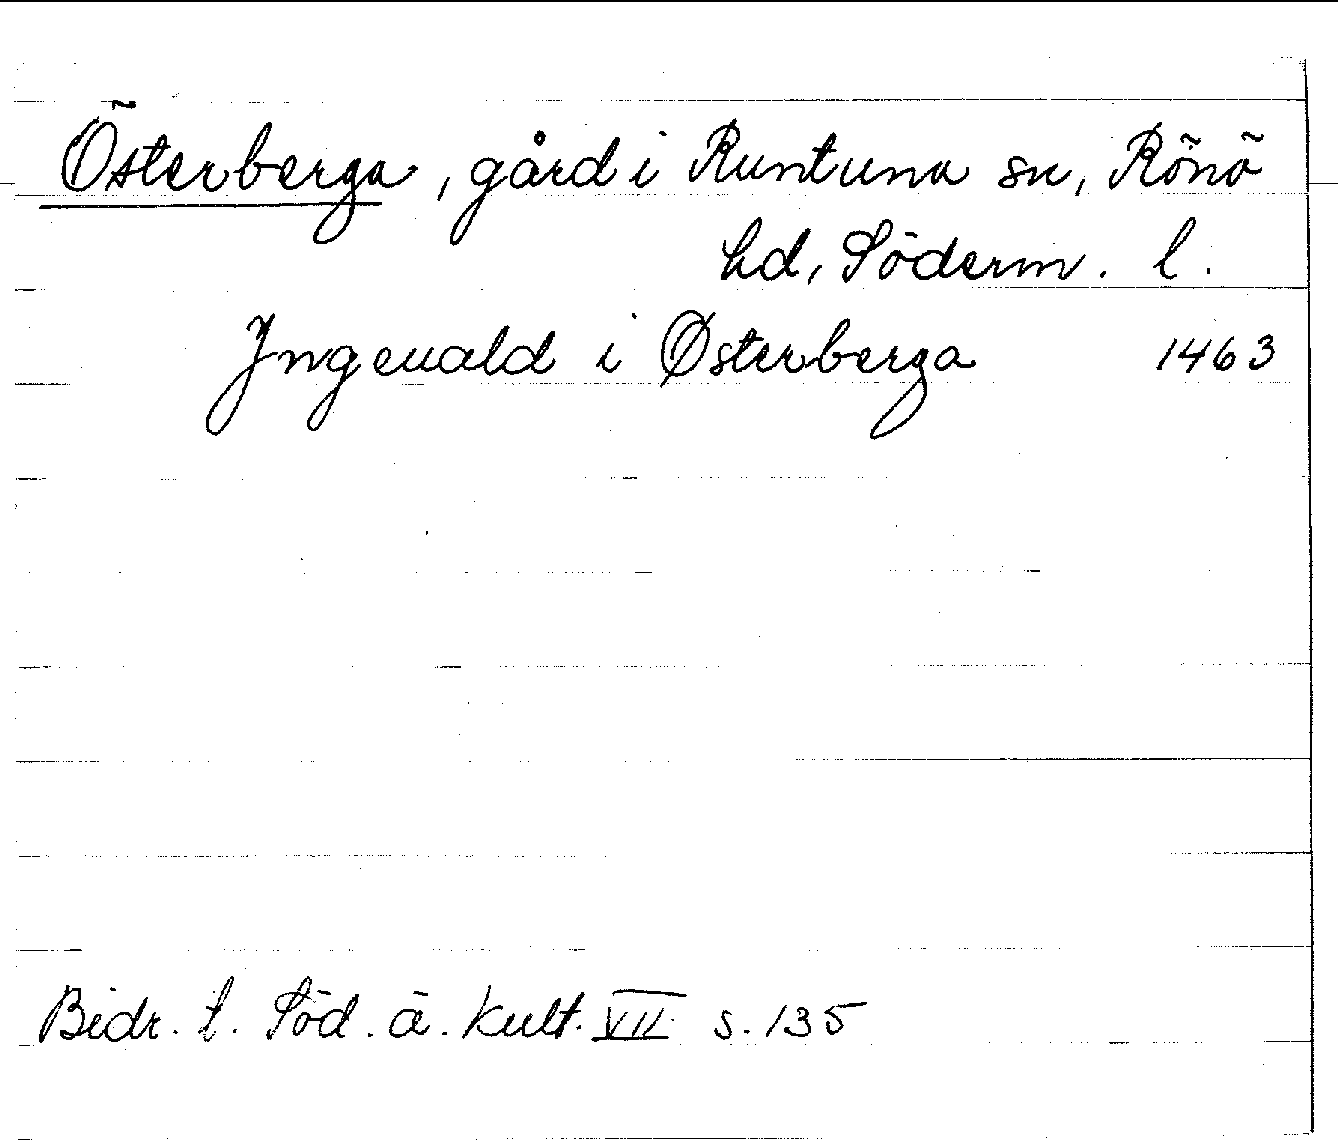 Österberga, gård i Runtuna sn, Rönö
hd, Söderm. l.
Yngeuald i Østerberga 1463
Bidr. t. Söd. ä. kult. VII s. 135